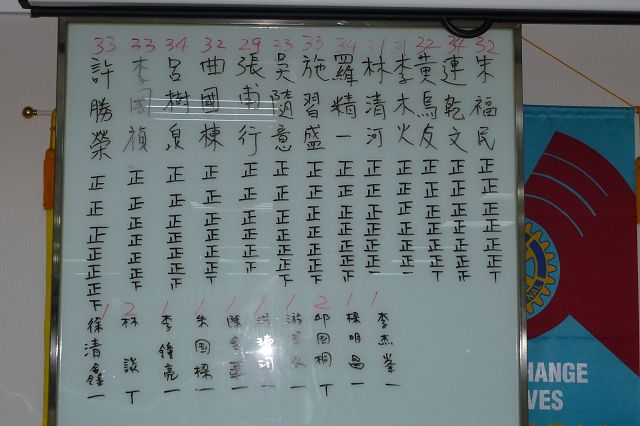 33 33 34 32 29 33 33 34 31 31 32 34 32
朱福民 正正正正正正丅
連乾文 正正正正正正正
黃烏友 正正正正正正丅
李木火 正正正正正正一
林清河 正正正正正正一
羅精一 正正正正正正正
施習盛 正正正正正正下
吳隨意 正正正正正正下
張甫行 正正正正正正
曲國棟 正正正正正正丅
呂樹泉 正正正正正正正
李國禎 正正正正正正下
許勝榮 正正正正正正下
1 2 1 1 1 1 1 2 1 1
李杰峯 一
楊明昌 一
邱国桐 丅
朱国樑 一
李鐘亮 一
林談 丅
徐清 一
HANGE
VES
NAL